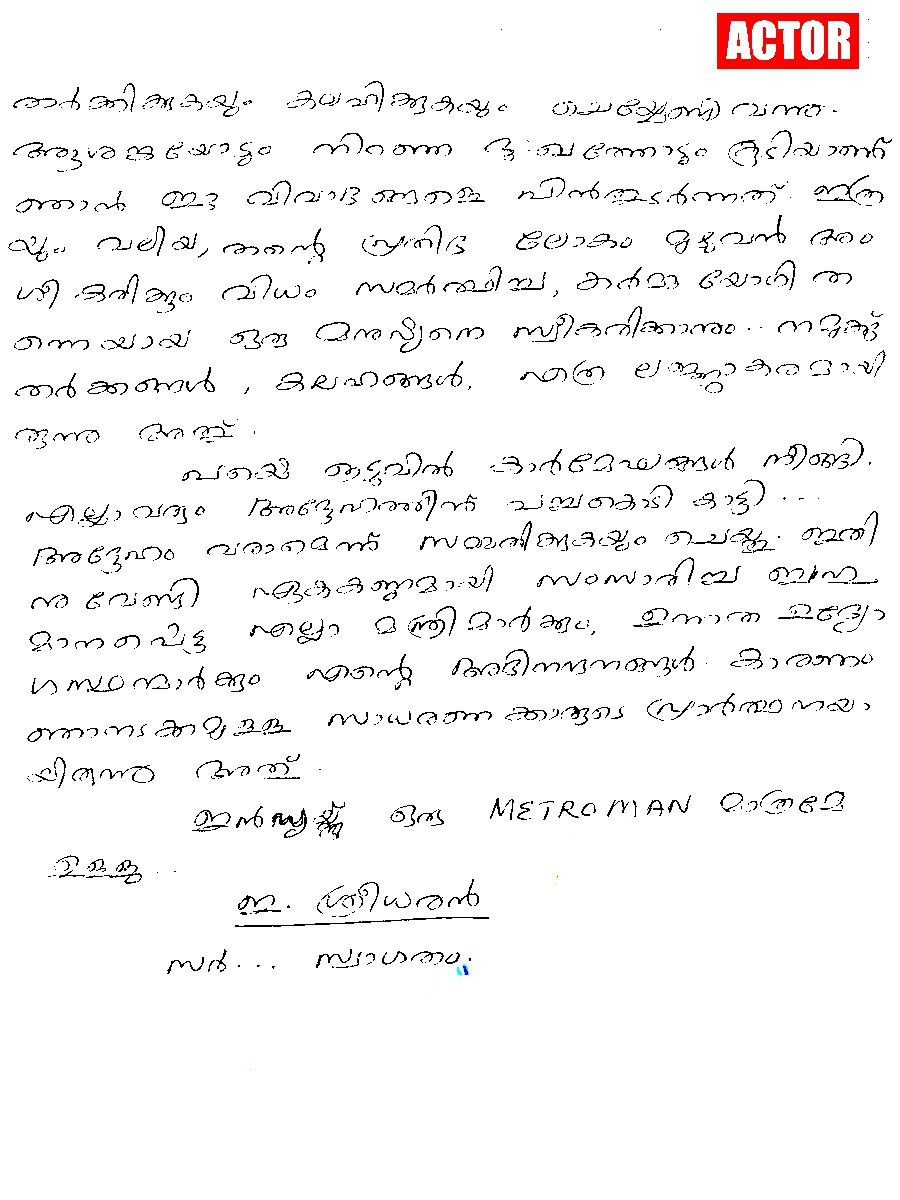 ACTOR
തർക്കിക്കുകയും കലഹിക്കുകയും ചെയ്യേണ്ടി വന്നു.
ആശങ്കയോടും നിറഞ്ഞ ദുഃഖത്തോടും കൂടിയാണ്
ഞാൻ ഈ വിവാദങ്ങളെ പിൻതുടർന്നത്. ഇത്ര
യും വലിയ, തന്റെ പ്രതിഭ ലോകം മുഴുവൻ അം
ഗീകരിക്കും വിധം സമർത്ഥിച്ച, കർമ്മ യോഗി ത
ന്നെയായ ഒരു മനുഷ്യനെ സ്വീകരിക്കാനും.. നമുക്ക്
തർക്കങ്ങൾ, കലഹങ്ങൾ. എത്ര ലജ്ജാകരമായി
രുന്നു അത്.
പക്ഷെ ഒടുവിൽ കാർമേഘങ്ങൾ നീങ്ങി.
എല്ലാവരും അദ്ദേഹത്തിന് പച്ചക്കൊടി കാട്ടി ...
അദ്ദേഹം വരാമെന്ന് സമ്മതിക്കുകയും ചെയ്തു. ഇതി
നു വേണ്ടി ഏകകണ്ഠമായി സംസാരിച്ച ബഹു
മാനപ്പെട്ട എല്ലാ മന്ത്രിമാർക്കും, ഉന്നത ഉദ്യോ
ഗസ്ഥന്മാർക്കും എന്റെ അഭിനന്ദനങ്ങൾ. കാരണം
ഞാനടക്കമുള്ള സാധരണക്കാരുടെ പ്രാർത്ഥനയാ
യിരുന്നു അത്.
ഒരു METROMAN മാത്രമേ
ഉള്ളൂ ..
ഇ. ശ്രീധരൻ
സർ... സ്വാഗതം.